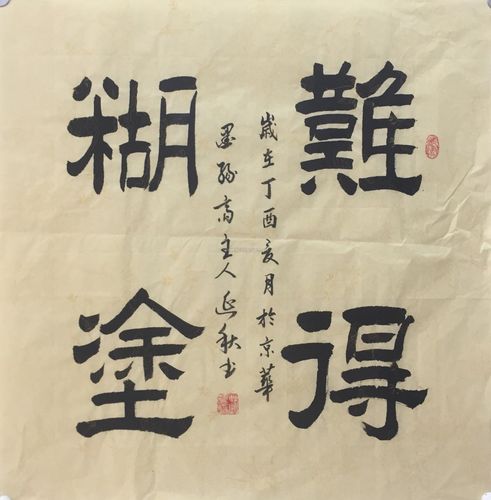 難得
糊塗
歲在丁酉亥月於京華
墨緣齋主人延秋书